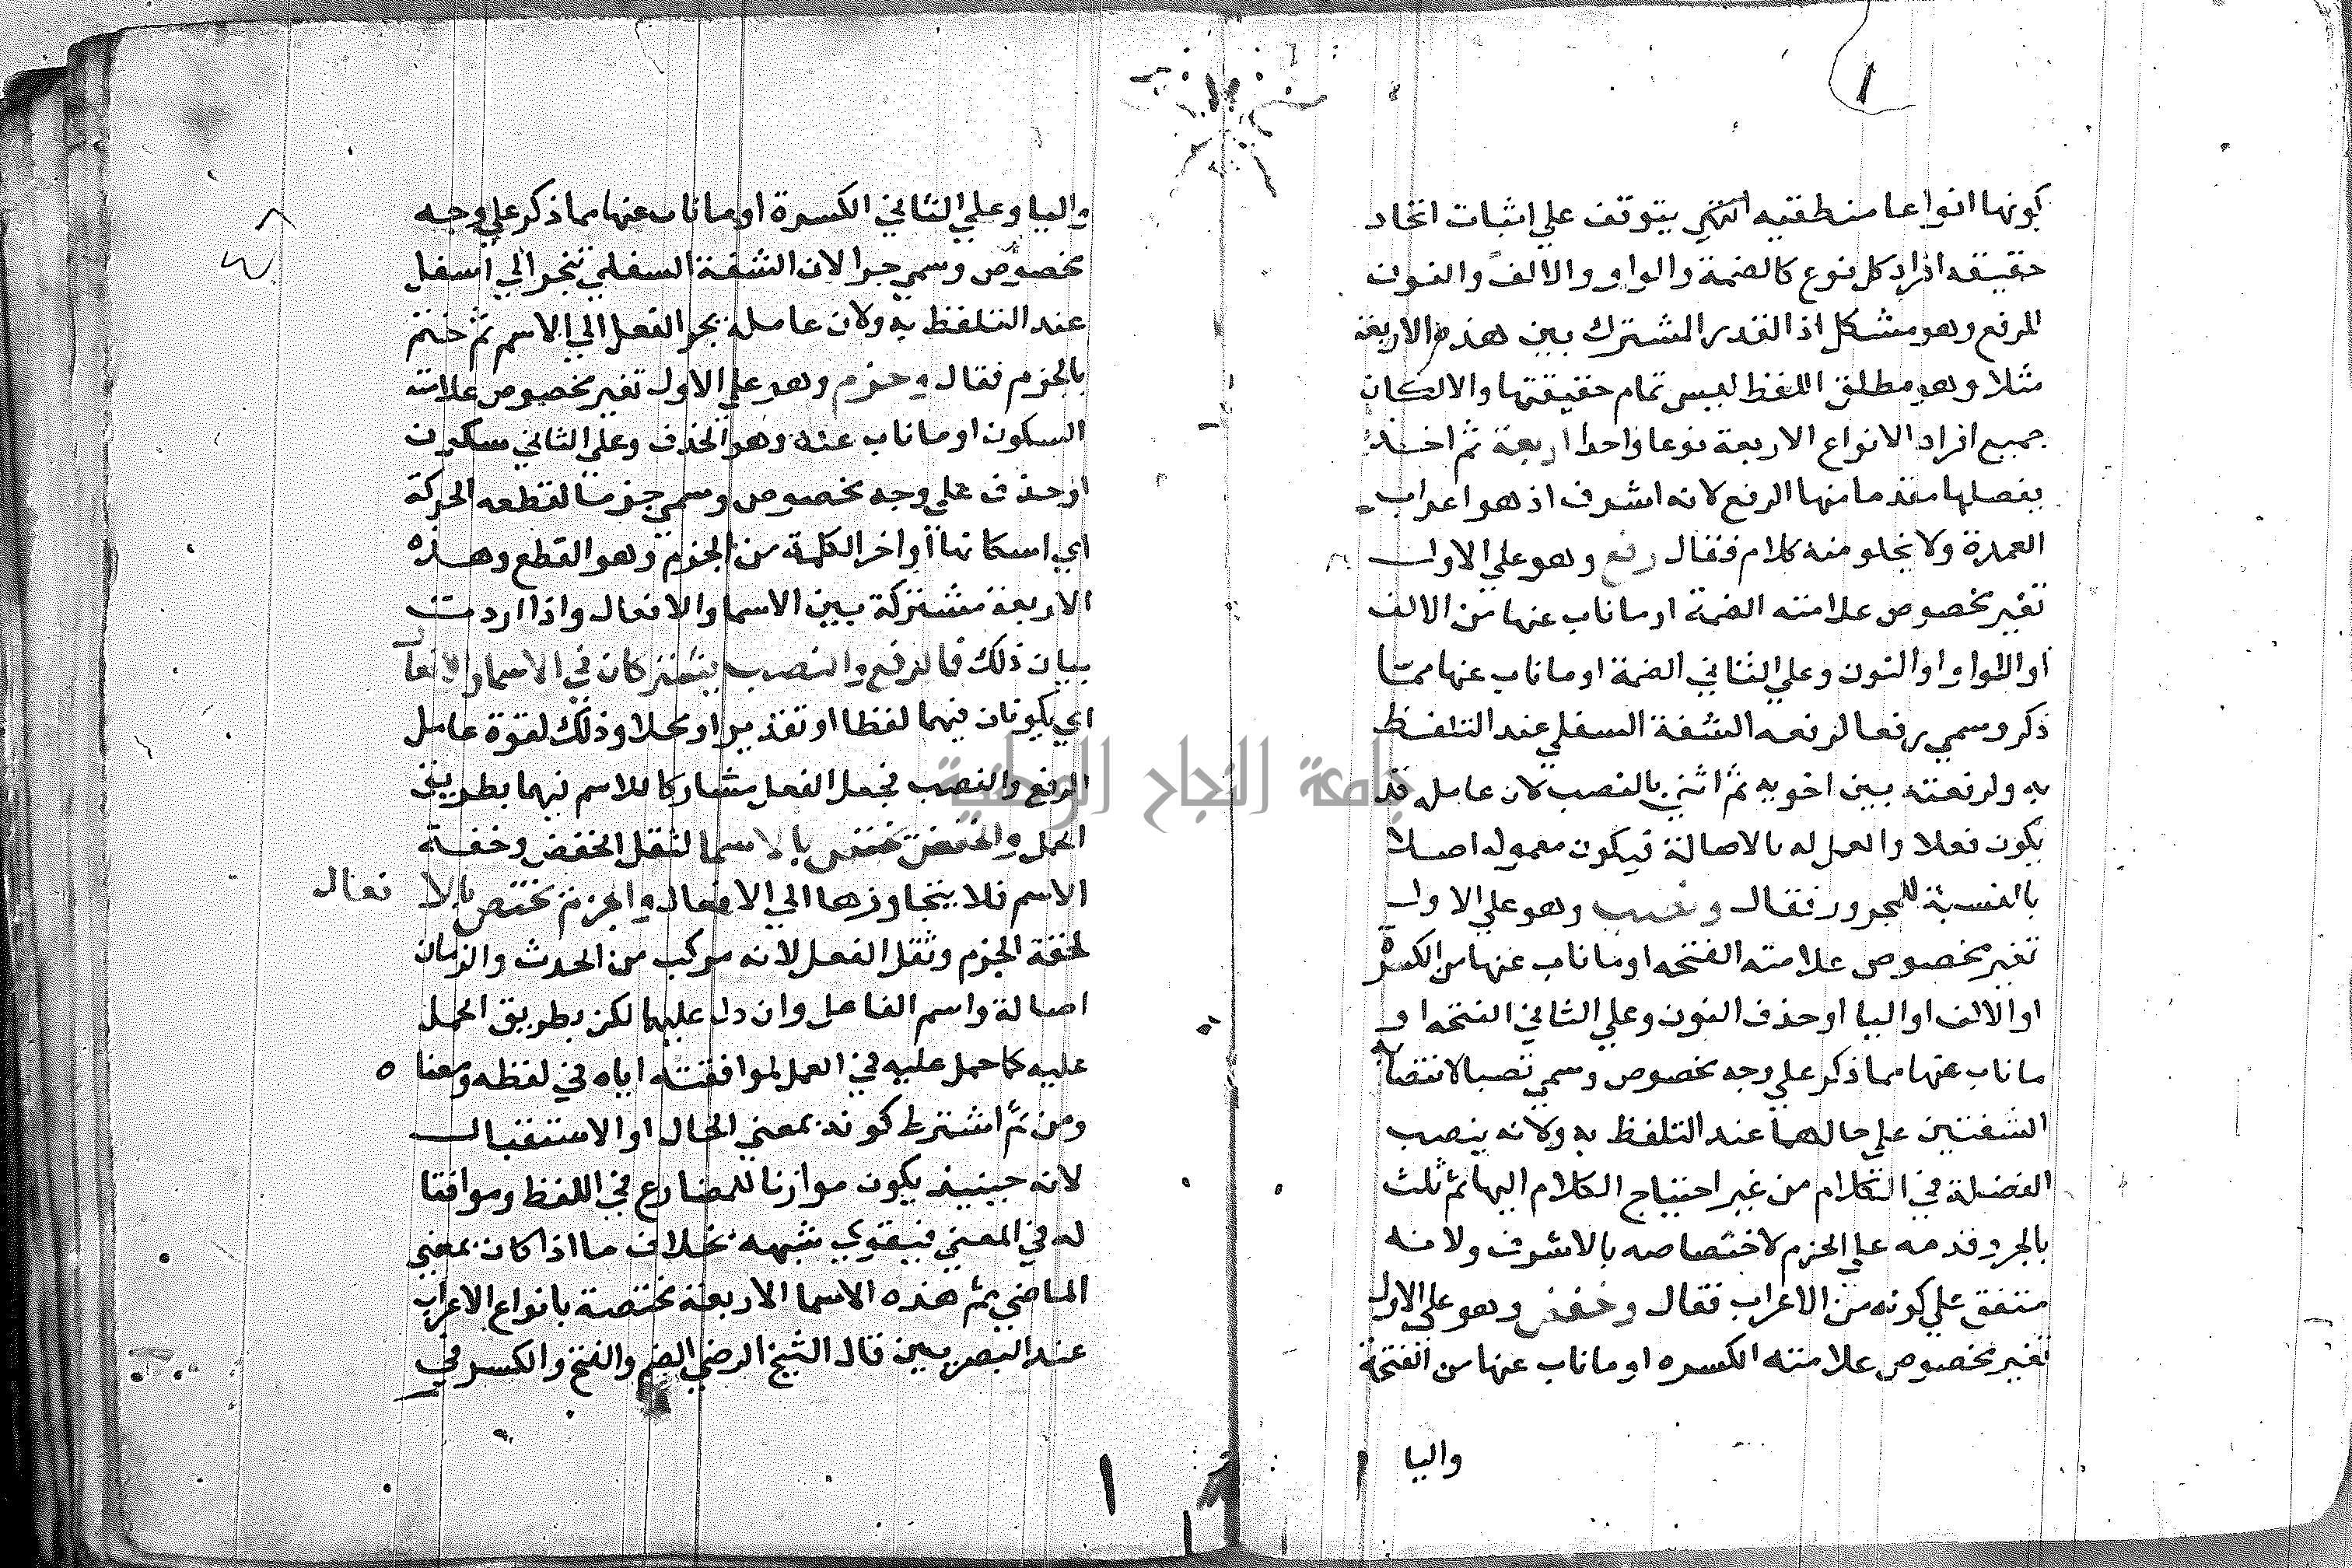 ١
كونها انواعا منطقيه انتهي يتوقف علي اثبات اتحاد
حقيقه افراد كل نوع كالضمة والواو والالف والنون
للرفع وهو مشكل اذ القدر المشترك بين هذه الاربعة
مثلا وهو مطلق اللفظ ليس تمام حقيقتها والا لكان
جميع افراد الانواع الاربعة نوعا واحدا اربعة ثم اخذ
يفصلها مقدما منها الرفع لانه اشرف اذ هو اعراب
العمدة ولا يخلو منه كلام فقال رفع وهو علي الاول
تغير مخصوص علامته الضمة او ما ناب عنها من الالف
او الواو او النون وعلي الثاني الضمة او ما ناب عنها مما
ذكر وسمي رفعا لرفعه الشفة السفلي عند التلفظ
به ولرفعته بين اخويه ثم اثني بالنصب لان عامله قد
يكون فعلا والعمل له بالاصالة فيكون معموله اصلا
بالنسبة للمجرور فقال ونصب وهو علي الاول
تغير مخصوص علامته الفتحه او ما ناب عنها من الكسرة
او الالف او اليا او حذف النون وعلي الثاني الفتحه او
ما ناب عنها مما ذكر علي وجه مخصوص وسمي نصبا لانتصاب
الشفتين علي حالهما عند التلفظ به ولانه ينصب
الفضلة في الكلام من غير احتياج الكلام اليها ثم ثلث
بالجر وقدمه علي الجزم لاختصاصه بالاشرف ولانه
متفق علي كونه من الاعراب فقال وخفض وهو علي الاول
تغير مخصوص علامته الكسره او ما ناب عنها من الفتحة
واليا
واليا وعلي الثاني الكسرة او ما ناب عنها مما ذكر علي وجه
مخصوص وسمي جرا لان الشفة السفلي تنجر الي اسفل
عند التلفظ به ولان عامله يجر الفعل الي الاسم ثم ختم
بالجزم فقال وجزم وهو علي الاول تغير مخصوص علامته
السكون او ما ناب عنه وهو الحذف وعلي الثاني سكون
او حذف علي وجه مخصوص وسمي جزما لقطعه الحركة
اي اسكانها اواخر الكلمة من الجزم وهو القطع وهذه
الاربعة مشتركة بين الاسما والافعال واذا اردت
بيان ذلك فالرفع والنصب يشتركان في الاسما والافعال
اي يكونان فيهما لفظا او تقديرا او محلا وذلك لقوة عامل
الرفع والنصب فجعل الفعل مشاركا للاسم فيهما بطريق
الحمل والخفض يختص بالاسما لثقل الخفض وخفة
الاسم فلا يتجاوزها الي الافعال والجزم يختص بالا فعال
لخفة الجزم وثقل الفعل لانه مركب من الحدث والزمان
اصالة واسم الفاعل وان دل عليها لكن بطريق الحمل
عليه كما حمل عليه في العمل لموافقته اياه في لفظه ومعناه
ومن ثم اشترط كونه بمعني الحال او الاستقبال
لانه حينيذ يكون موازنا للمضارع في اللفظ وموافقا
له في المعني فيقوي شبهه بخلاف ما اذا كان بمعني
الماضي ثم هذه الاسما الاربعة مختصة بانواع الاعراب
عند البصريين قال الشيخ الرضي الضم والفتح والكسر في
جامعة النجاح الوطنية